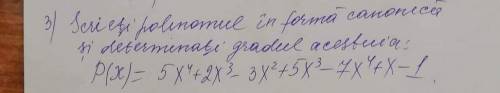 3) Scrieți polinomul în formă canonică
și determinați gradul acestuia:
P(x) = 5x⁴+2x³-3x²+5x³-7x⁴+x-1